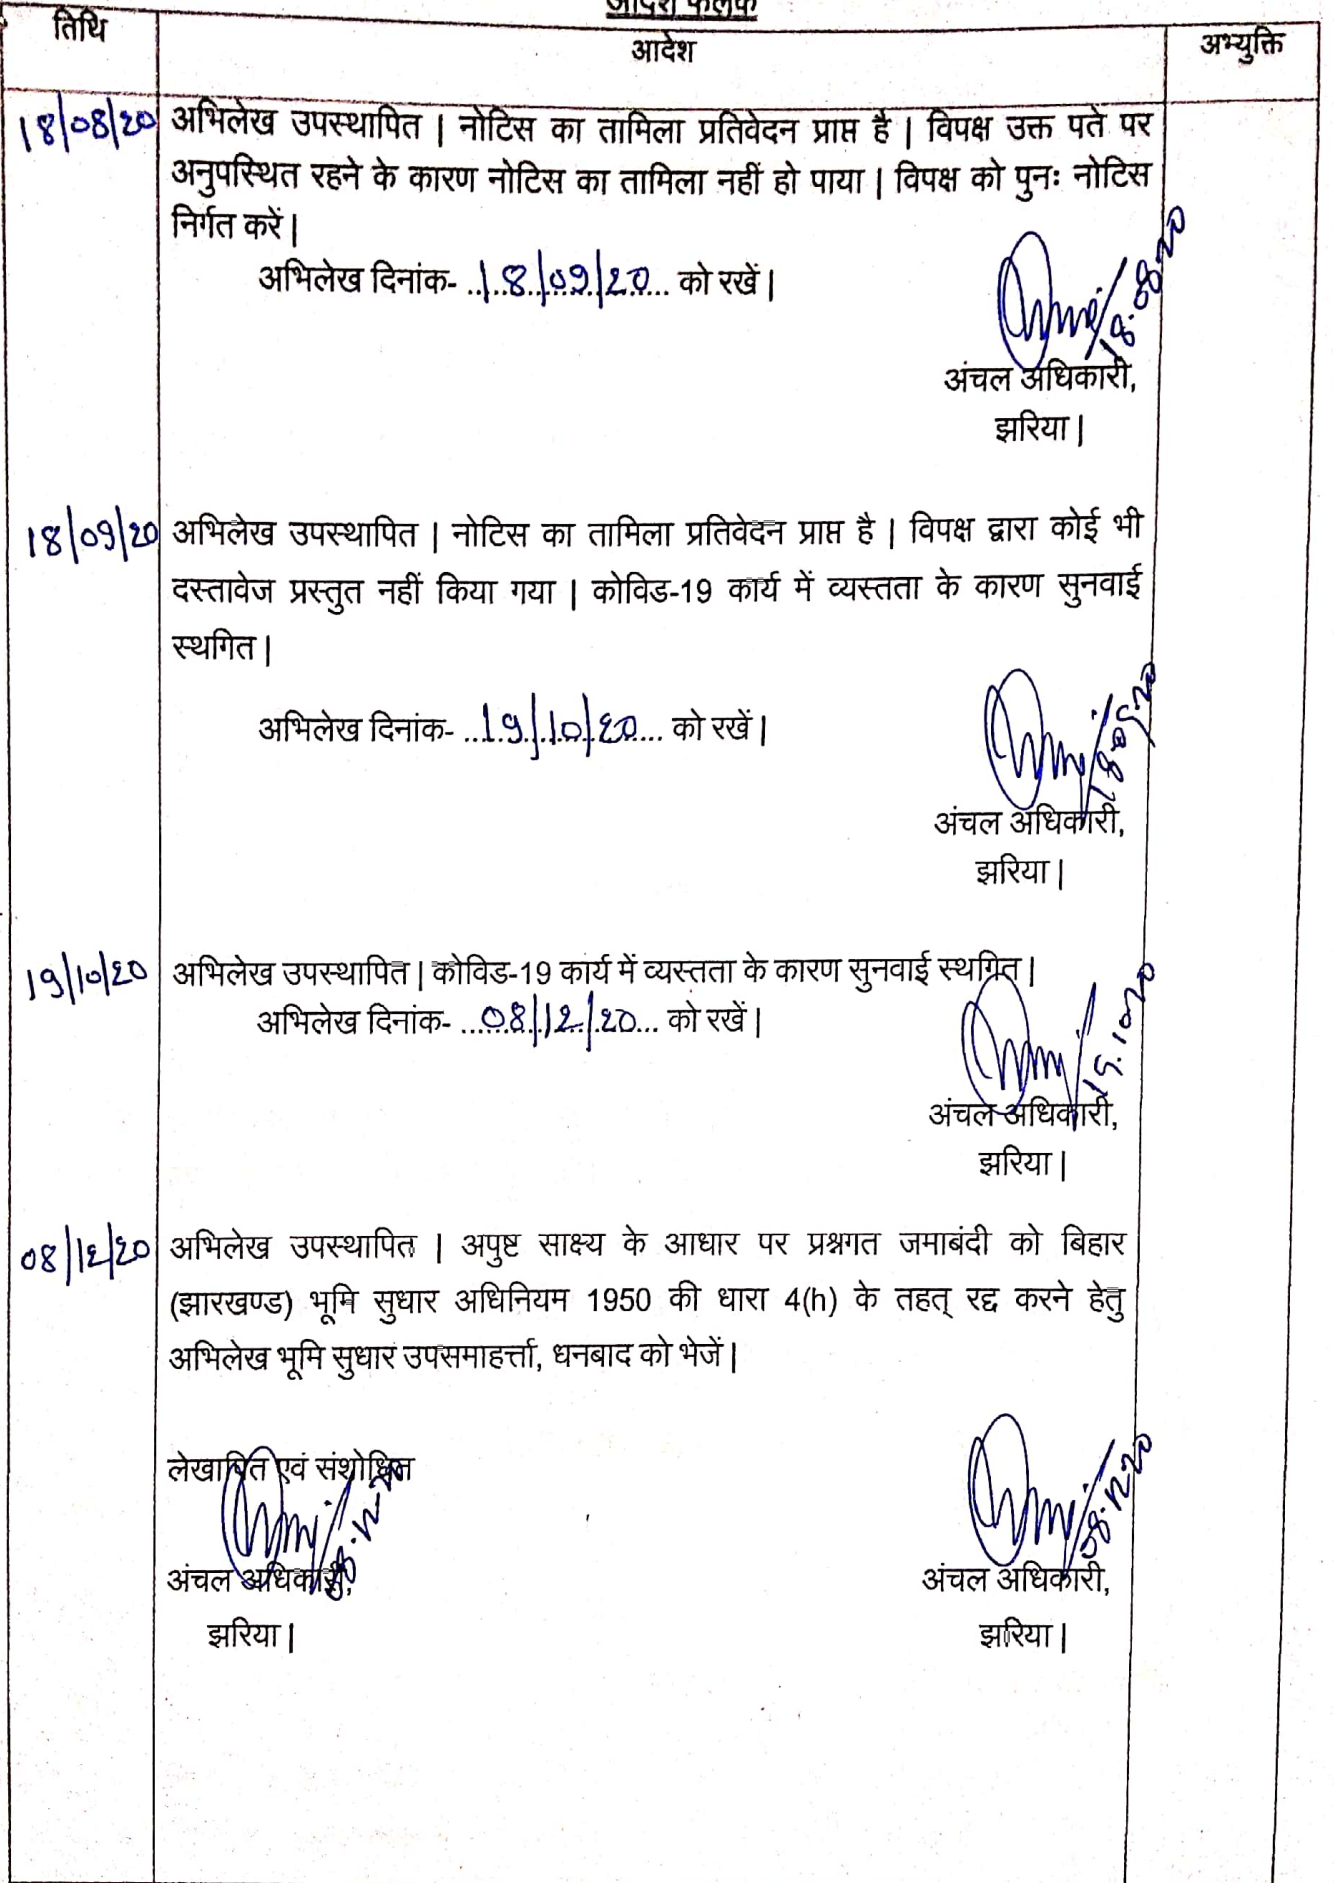 आदेश फलक
तिथि
आदेश
अभ्युक्ति
18/08/20 अभिलेख उपस्थापित | नोटिस का तामिला प्रतिवेदन प्राप्त है | विपक्ष उक्त पते पर
अनुपस्थित रहने के कारण नोटिस का तामिला नहीं हो पाया | विपक्ष को पुनः नोटिस
निर्गत करें |
अभिलेख दिनांक- ..18/09/20... को रखें |
18.08.20
अंचल अधिकारी,
झरिया |
18/09/20 अभिलेख उपस्थापित | नोटिस का तामिला प्रतिवेदन प्राप्त है | विपक्ष द्वारा कोई भी
दस्तावेज प्रस्तुत नहीं किया गया | कोविड-19 कार्य में व्यस्तता के कारण सुनवाई
स्थगित |
अभिलेख दिनांक- ...19/10/20.... को रखें |
18.09.20
अंचल अधिकारी,
झरिया |
19/10/20 अभिलेख उपस्थापित | कोविड-19 कार्य में व्यस्तता के कारण सुनवाई स्थगित |
अभिलेख दिनांक- ...08/12/20... को रखें |
19.10.20
अंचल अधिकारी,
झरिया |
08/12/20 अभिलेख उपस्थापित | अपुष्ट साक्ष्य के आधार पर प्रश्नगत जमाबंदी को बिहार
(झारखण्ड) भूमि सुधार अधिनियम 1950 की धारा 4(h) के तहत् रद्द करने हेतु
अभिलेख भूमि सुधार उपसमाहर्त्ता, धनबाद को भेजें |
लेखापित एवं संशोधित
08.12.20
08.12.20
अंचल अधिकारी,
अंचल अधिकारी,
झरिया |
झरिया |